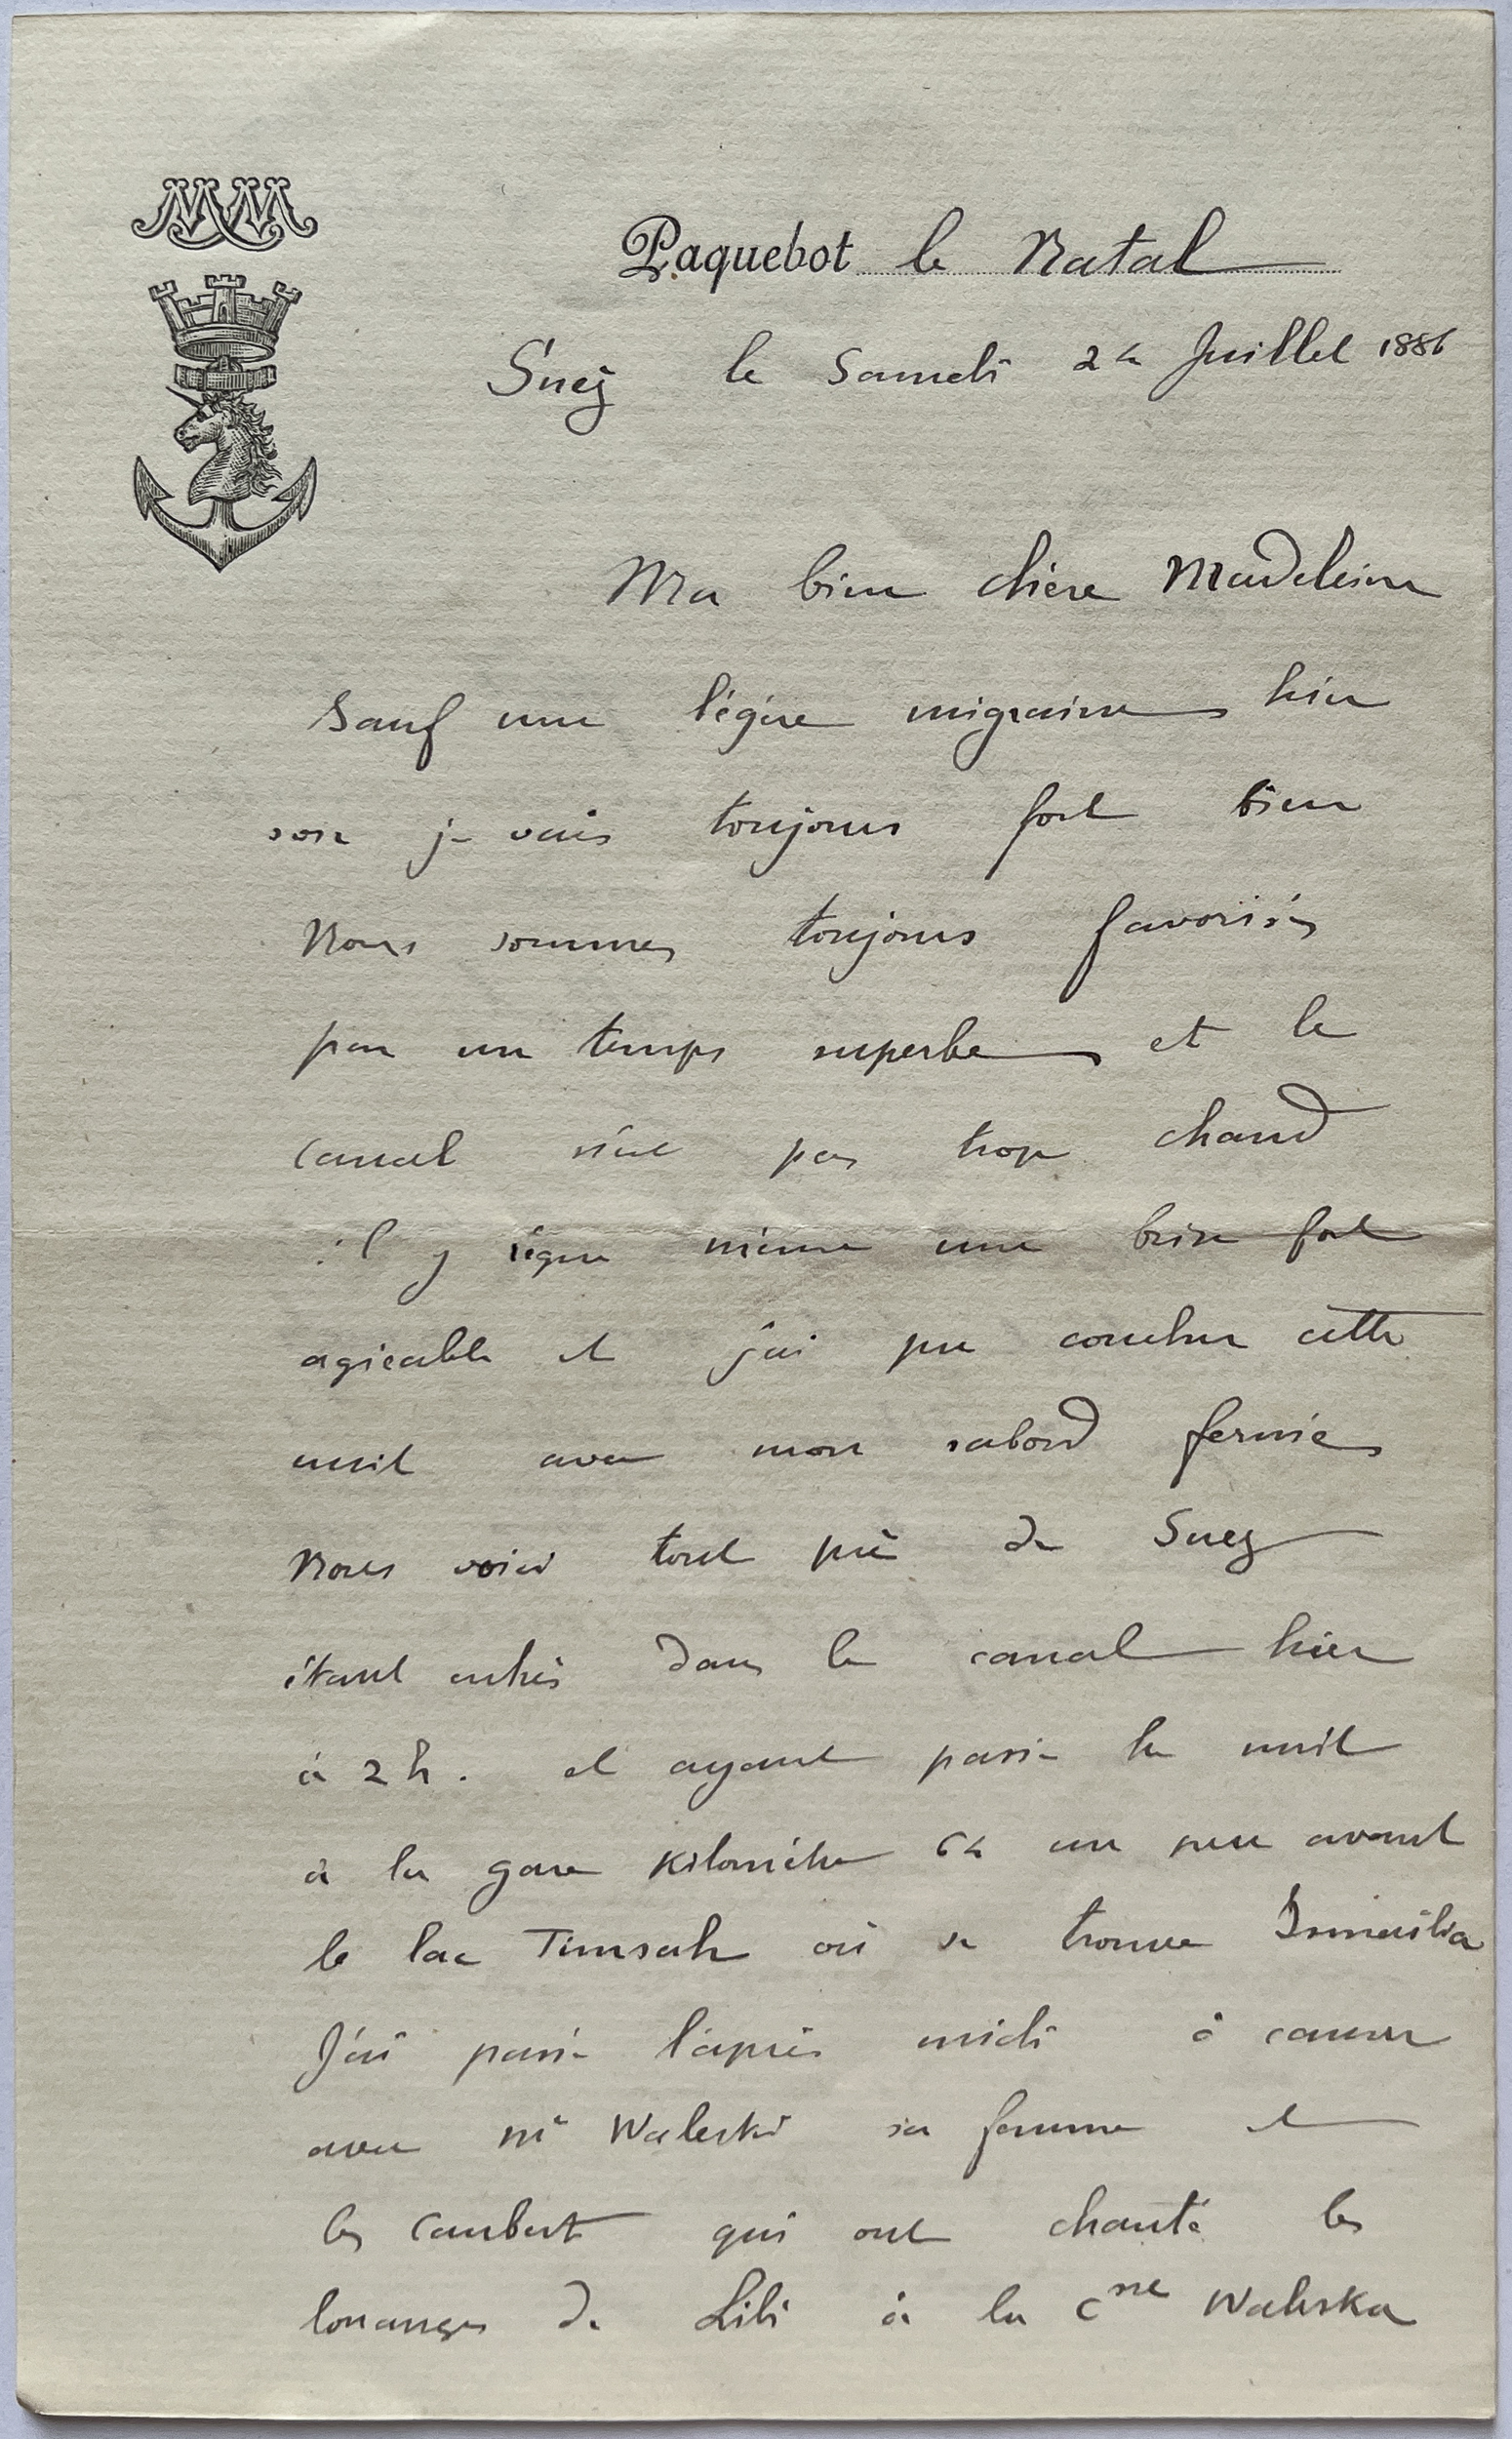 MM
Paquebot le Natal
Suez le Samedi 24 Juillet 1886
Ma bien chère Madeleine
Sauf une légère migraine hier
soir je vais toujours fort bien
Nous sommes toujours favorisés
par un temps superbe et le
canal n'est pas trop chaud
il y règne même une brise fort
agréable et j'ai pu coucher cette
nuit avec mon sabord fermé
Nous voici tout près de Suez
étant entrés dans le canal hier
à 2 h. et ayant passé la nuit
à la gare kilomètre 64 un peu avant
le lac Timsah où se trouve Ismaïlia
J'ai passé l'après midi à causer
avec Mr Waleski sa femme et
les Caubert qui ont chanté les
louanges de Lili à la Csse Waleska